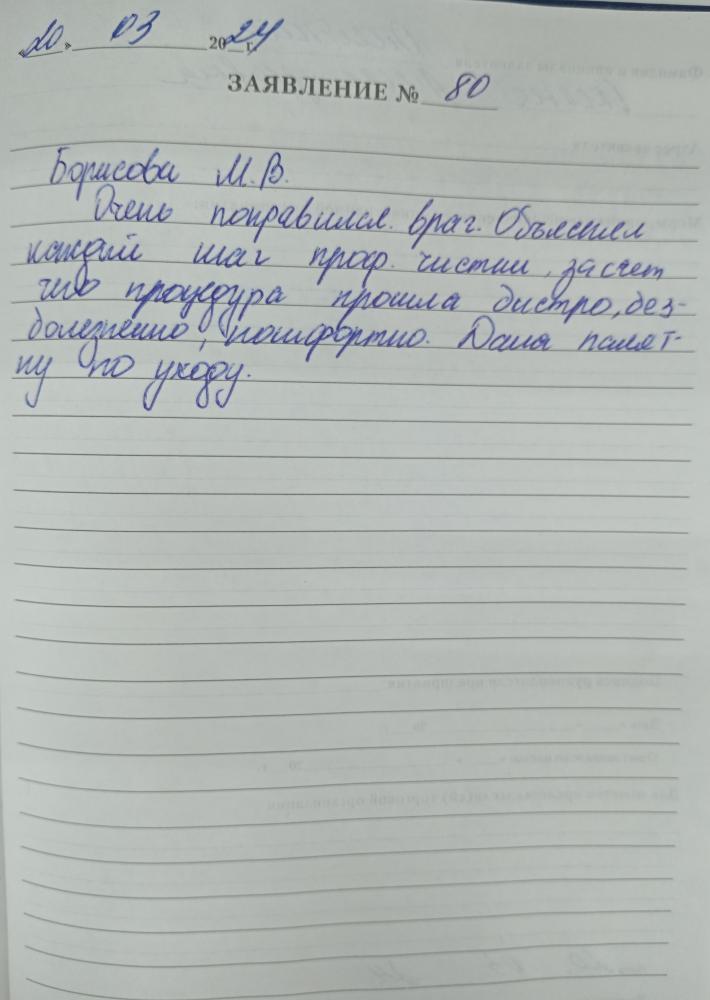 «20» 03 2024 г.
ЗАЯВЛЕНИЕ № 80
Борисова М.В.
Очень понравился врач. Объяснил
каждый шаг проф. чистки, за счет
чего процедура прошла быстро, без-
болезненно, комфортно. Дала памят-
ку по уходу.